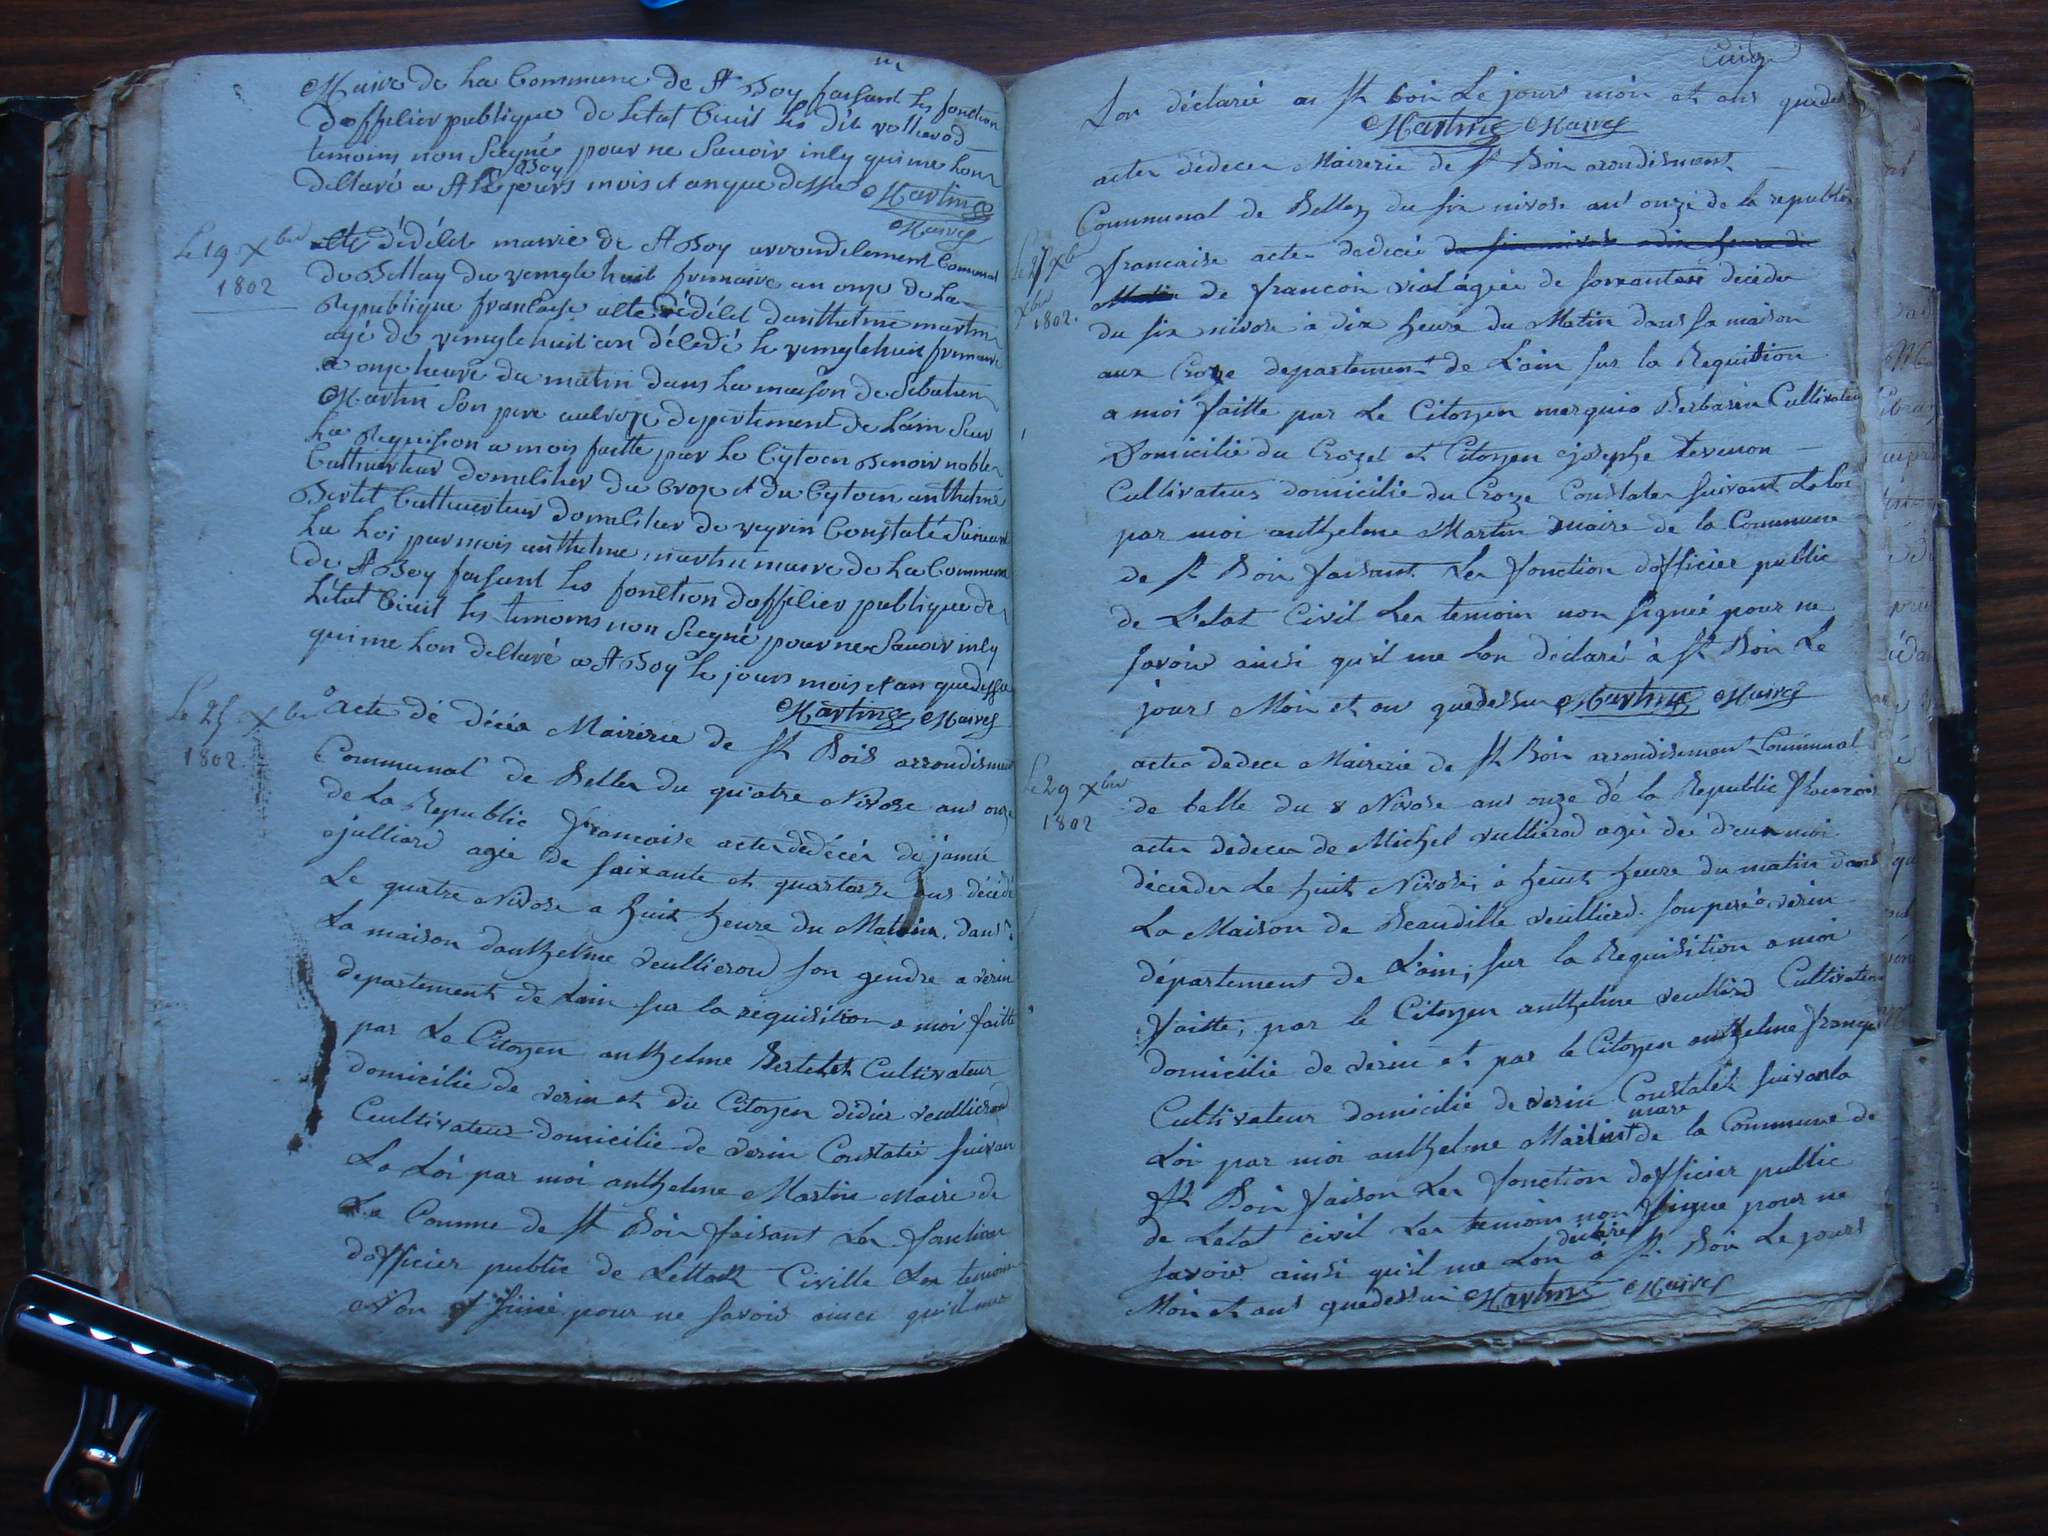 Maire de La Commune de St Boy faisant les fonction
dofficier publique de letat Civil les dit
temoins non Seigné pour ne Sauoir
declaré a St Boy Le jours mois et an que dessu Martin
Maire
Le 19 Xbre
1802
acte dédécet mairie de St Boy arrondicement Communal
de Bellay du vingte huit frimaire an onze de La
Republique francaise acte dédécet danthelme martin
agé de vingtehuit an décédé le vingtehuit frimaire
a onze heure du matin dans La maison de Sebatien
Martin Son pere au departement de Lain Seur
La Requision a mois faitte par Le Cytoen Benoir noble
Cultiuerteur domicilier du Croze et du Cytoen anthelme
Bertet Cultiuerteur domicilier de veyrin Constaté Suiuant
La Loi par mois anthelme martin maire de La Commune
de St Boy faisant Les fonction dofficier publique de
Letat Ciuil les temoins non Seigné pour ne Sauoir
qui me Lon declaré a St Boy le jours mois et an que dessu
Martin Maire
Le 25 Xbre
1802
Acte dé décéa Mairerie de St Bois arrondisment
Communal de Belle du quatre Nivose ans onze
de La Republic francaise acte dedécéa de
julliard agée de soixante et quartorze ans décédé
Le quatre Nivose a huit heure du Matin dans
La maison danthelme veullierod son gendre a verin
departement de Lain sur la requisition a moi faitte
par Le Citoyen anthelme Bertet Cultivateur
domicilie de verin et du Citoyen didier veullierod
Cultivateur domicilie de verin Constatée suivan
La Loi par moi anthelme Martin Maire de
La Comme de St Boin faisant Les fonction
dofficier public de Lettat Civille Les temoin
Non pour ne savoir ainci quil me
Lon déclarée a St Boin Le jours moin et ans quedes
Martin Maire
actes dedeces Mairerie de St Boin arondisment
Communal de Belley du six nivose an onze de la republi
Le 27 Xbre
Xbre
1802.
francaise actes dedecée du six nivose a dix heure di
Matin de francois vial agée de soixante decedee
du six nivose a dix heure du Matin dans sa maison
aux Croze departement de L'ain sur la Requition
a moi faitte par Le Citoyen marquis Berbarin Cultivateu
Domicilie du Crozet et Citoyen josephe tevenon
Cultivateur domicilie du Croze Constater suivant Laloi
par moi anthelme Martin maire de la Commune
de St Boin faisant Les fonction dofficier public
de L'etat Civil Les temoin non signeé pour ne
savoir ainsi qu'il me Lon déclaré à St Boin Le
jours Moin et an quedessu Martin Maire
Le 29 Xbre
1802
actes dedece Mairerie de St Boin arrondisement Communal
de belle du 8 Nivose ans onze dé la Republic francois
actes dedeces de Michel vullierod agée de deux moi
décedes Le huit Nivose, à heuit heure du matin dans
La Maison de Beaudille veullierd son pere a verin
département de L'ain, sur la Requisition a moi
faitte; par le Citoyen anthelme veullierd Cultivateur
domicilie de verin et par le Citoyen anthelme
Cultivateur domicilie de verin Constatét suivanla
maire
Loi par moi anthelme Martin de la Commune de
St Boin faison Les fonction dofficier public
de Letat civil Les temoin non signe pour ne
déclaré
savoir ainsi qu'il me Lon à St Boin Le jours
Moin et ans quedessu Martin Maire